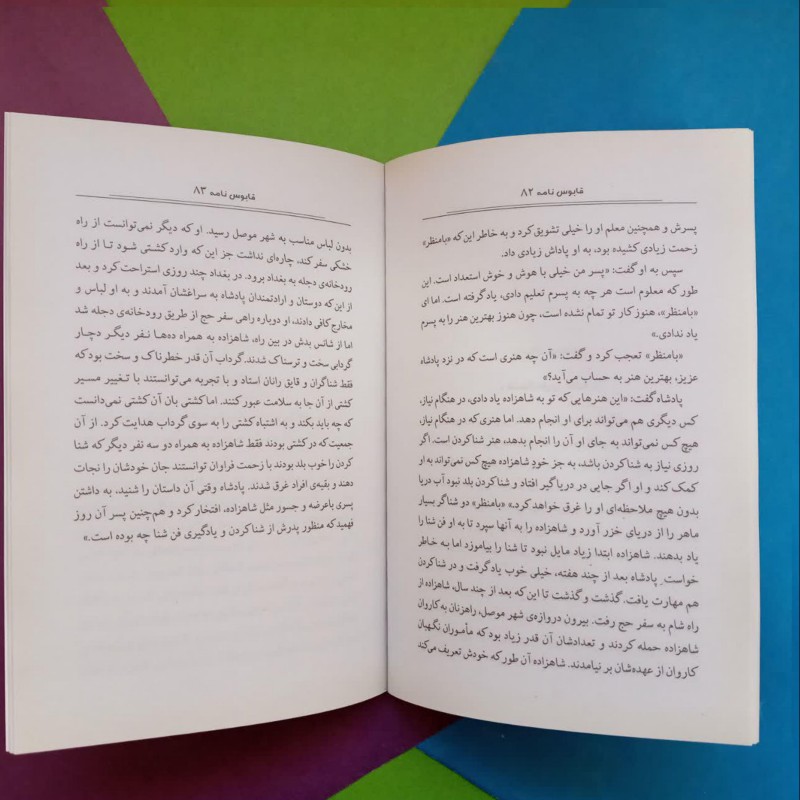 قابوس نامه ۸۲
پسرش و همچنین معلم او را خیلی تشویق کرد و به خاطر این که «بامنظر»
زحمت زیادی کشیده بود، به او پاداش زیادی داد.
سپس به او گفت: «پسر من خیلی با هوش و خوش استعداد است. این
طور که معلوم است هر چه به پسرم تعلیم دادی، یادگرفته است. اما ای
«بامنظر»، هنوز کار تو تمام نشده است، چون هنوز بهترین هنر را به پسرم
یاد ندادی.»
«بامنظر» تعجب کرد و گفت: «آن چه هنری است که در نزد پادشاه
عزیز، بهترین هنر به حساب می‌آید؟»
پادشاه گفت: «این هنرهایی که تو به شاهزاده یاد دادی، در هنگام نیاز،
کس دیگری هم می‌تواند برای او انجام دهد. اما هنری که در هنگام نیاز،
هیچ کس نمی‌تواند به جای او آن را انجام بدهد، هنر شناکردن است. اگر
روزی نیاز به شناکردن باشد، به جز خودِ شاهزاده هیچ کس نمی‌تواند به او
کمک کند و او اگر جایی در دریا گیر افتاد و شناکردن بلد نبود آب دریا
بدون هیچ ملاحظه‌ای او را غرق خواهد کرد.» «بامنظر» دو شناگر بسیار
ماهر را از دریای خزر آورد و شاهزاده را به آنها سپرد تا به او فن شنا را
یاد بدهند. شاهزاده ابتدا زیاد مایل نبود تا شنا را بیاموزد اما به خاطر
خواست پادشاه بعد از چند هفته، خیلی خوب یادگرفت و در شناکردن
هم مهارت یافت. گذشت و گذشت تا این که بعد از چند سال، شاهزاده از
راه شام به سفر حج رفت. بیرون دروازه‌ی شهر موصل، راهزنان به کاروان
شاهزاده حمله کردند و تعدادشان آن قدر زیاد بود که مأموران نگهبان
کاروان از عهده‌شان بر نیامدند. شاهزاده آن طور که خودش تعریف می‌کند
قابوس نامه ۸۳
بدون لباس مناسب به شهر موصل رسید. او که دیگر نمی‌توانست از راه
خشکی سفر کند، چاره‌ای نداشت جز این که وارد کشتی شود تا از راه
رودخانه‌ی دجله به بغداد برود. در بغداد چند روزی استراحت کرد و بعد
از این که دوستان و ارادتمندان پادشاه به سراغشان آمدند و به او لباس و
مخارج کافی دادند، او دوباره راهی سفر حج از طریق رودخانه‌ی دجله شد
اما از شانس بدش در بین راه، شاهزاده به همراه ده‌ها نفر دیگر دچار
گردابی سخت و ترسناک شدند. گرداب آن قدر خطرناک و سخت بود که
فقط شناگران و قایق رانان استاد و با تجربه می‌توانستند با تغییر مسیر
کشتی از آن جا به سلامت عبور کنند. اما کشتی بان آن کشتی نمی‌دانست
که چه باید بکند و به اشتباه کشتی را به سوی گرداب هدایت کرد. از آن
جمعیت که در کشتی بودند فقط شاهزاده به همراه دو سه نفر دیگر که شنا
کردن را خوب بلد بودند با زحمت فراوان توانستند جان خودشان را نجات
دهند و بقیه‌ی افراد غرق شدند. پادشاه وقتی آن داستان را شنید، به داشتن
پسری باعرضه و جسور مثل شاهزاده، افتخار کرد و هم‌چنین پسر آن روز
فهمید که منظور پدرش از شناکردن و یادگیری فن شنا چه بوده است.»